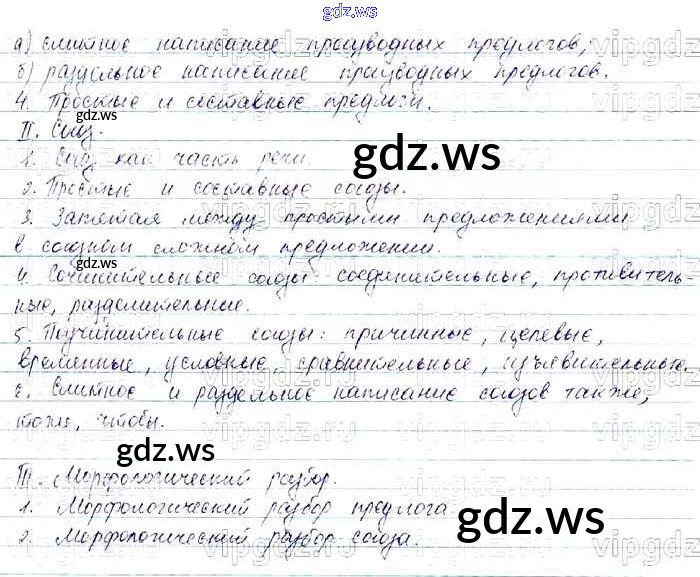 gdz.ws
а) слитное написание производных предлогов,
б) раздельное написание производных предлогов.
4. Простые и составные предлоги.
gdz.ws
II. Союз.
gdz.ws
1. Союз как часть речи.
2. Простые и составные союзы.
3. Запятая между простыми предложениями
в союзном сложном предложении.
gdz.ws
4. Сочинительные союзы: соединительные, противитель-
ные, разделительные.
5. Подчинительные союзы: причинные, целевые,
временные, условные, сравнительные, изъявительные.
6. Слитное и раздельное написание союзов также,
тоже, чтобы.
gdz.ws
III. Морфологический разбор.
1. Морфологический разбор предлога.
gdz.ws
2. Морфологический разбор союза.